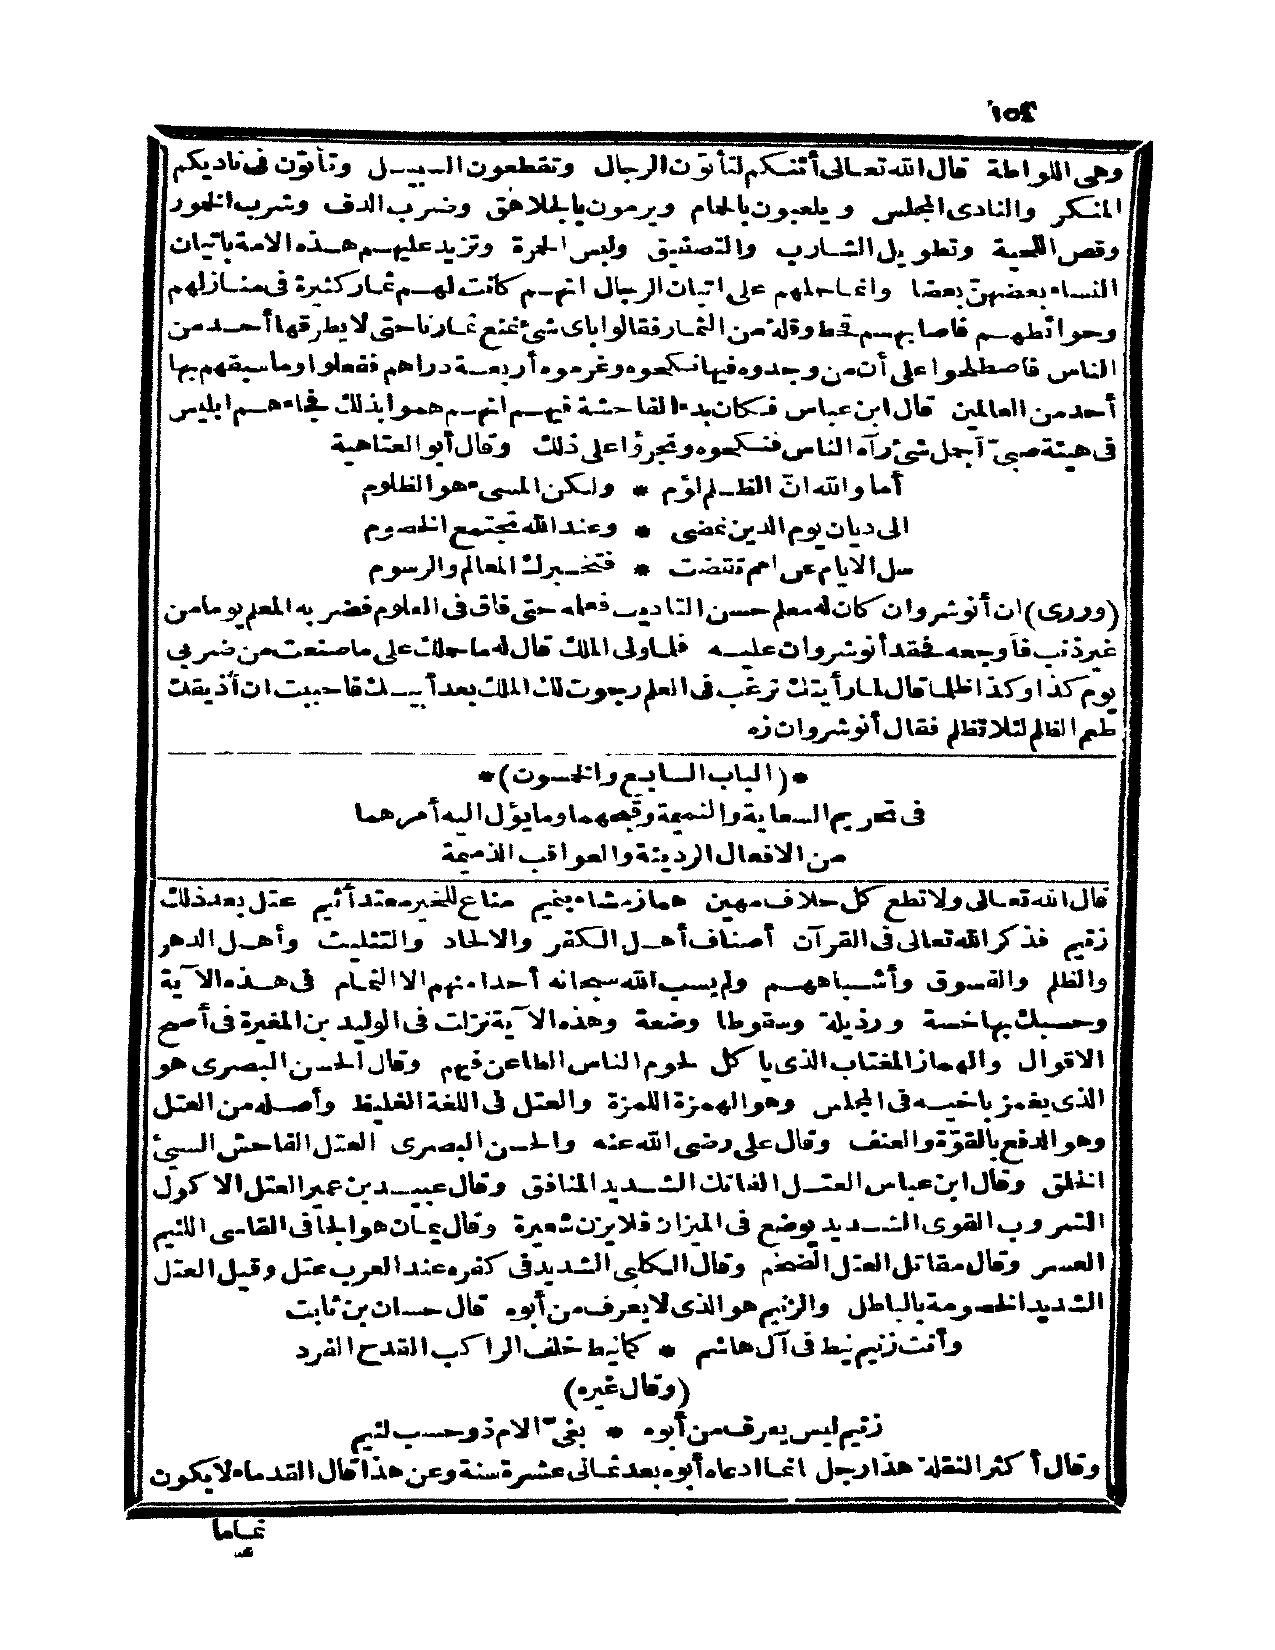 ٢٥٦
وهى اللواطة قال الله تعالى أئنكم لتأتون الرجال وتقطعون السبيل وتأتون فى ناديكم
المنكر والنادى المجلس ويلعبون بالحمام ويرمون بالجلاهق وضرب الدف وشرب الخمور
وقص اللحية وتطويل الشارب والتصفيق ولبس الحمرة وتزيد عليهم هذه الامة باتيان
النساء بعضهنّ بعضا وانما حملهم على اتيان الرجال انهم كانت لهم ثمار كثيرة فى منازلهم
وحوائطهم فاصابهم قحط وقلة من الثمار فقالوا باى شئ نمنع ثمارنا حتى لا يطرقها أحد من
الناس فاصطلحوا على أن من وجدوه فيها نكحوه وغرموه أربعة دراهم ففعلوا وما سبقهم بها
أحد من العالمين قال ابن عباس فكان بدء الفاحشة فيهم انهم هموا بذلك فجاءهم ابليس
فى هيئة صبىّ أجمل شئ رآه الناس فنكحوه وتجرؤا على ذلك وقال أبو العتاهية
أما والله انّ الظلم لؤم * ولكن المسىء هو الظلوم
الى ديان يوم الدين نمضى * وعند الله تجتمع الخصوم
سل الايام عن امم تقضت * فتخبرك المعالم والرسوم
(وروى) ان أنوشروان كان له معلم حسن التاديب فعلمه حتى فاق فى العلوم فضربه المعلم يوما من
غير ذنب فأوجعه فحقد أنوشروان عليه فلما ولى الملك قال له ما حملك على ما صنعت من ضربى
يوم كذا وكذا ظلما قال لما رأيتك ترغب فى العلم رجوت لك الملك بعد أبيك فاحببت ان أذيقك
طعم الظلم لئلا تظلم فقال أنوشروان زه
*(الباب السابع والخمسون)*
فى تحريم السعاية والنميمة وقبحهما وما يؤل اليه أمرهما
من الافعال الرديئة والعواقب الذميمة
قال الله تعالى ولا تطع كل حلاف مهين هماز مشاء بنميم مناع للخير معتد أثيم عتل بعد ذلك
زنيم فذكر الله تعالى فى القرآن أصناف أهل الكفر والالحاد والتثليث وأهل الدهر
والظلم والفسوق وأشباههم ولم يسب الله سبحانه أحدا منهم الا النمام فى هذه الآية
وحسبك بها خسة ورذيلة وسقوطا وضعة وهذه الآية نزلت فى الوليد بن المغيرة فى أصح
الاقوال والهماز المغتاب الذى ياكل لحوم الناس الطاعن فيهم وقال الحسن البصرى هو
الذى يغمز باخيه فى المجلس وهو الهمزة اللمزة والعتل فى اللغة الغليظ وأصله من العتل
وهو الدفع بالقوّة والعنف وقال على رضى الله عنه والحسن البصرى العتل الفاحش السيئ
الخلق وقال ابن عباس العتل الفاتك الشديد المنافق وقال عبيد بن عمير العتل الاكول
الشروب القوى الشديد يوضع فى الميزان فلا يزن شعيرة وقال يمان هو الجافى القاسى اللئيم
العسر وقال مقاتل العتل الضخم وقال الكلبى الشديد فى كفره عند العرب عتل وقيل العتل
الشديد الخصومة بالباطل والزنيم هو الذى لا يعرف من أبوه قال حسان بن ثابت
وأنت زنيم نيط فى آل هاشم * كما نيط خلف الراكب القدح الفرد
(وقال غيره)
زنيم ليس يعرف من أبوه * بغىّ الام ذو حسب لئيم
وقال أكثر النقلة هذا رجل انما ادعاه أبوه بعد ثمانى عشرة سنة وعن هذا قال القدماء لا يكون
نماما